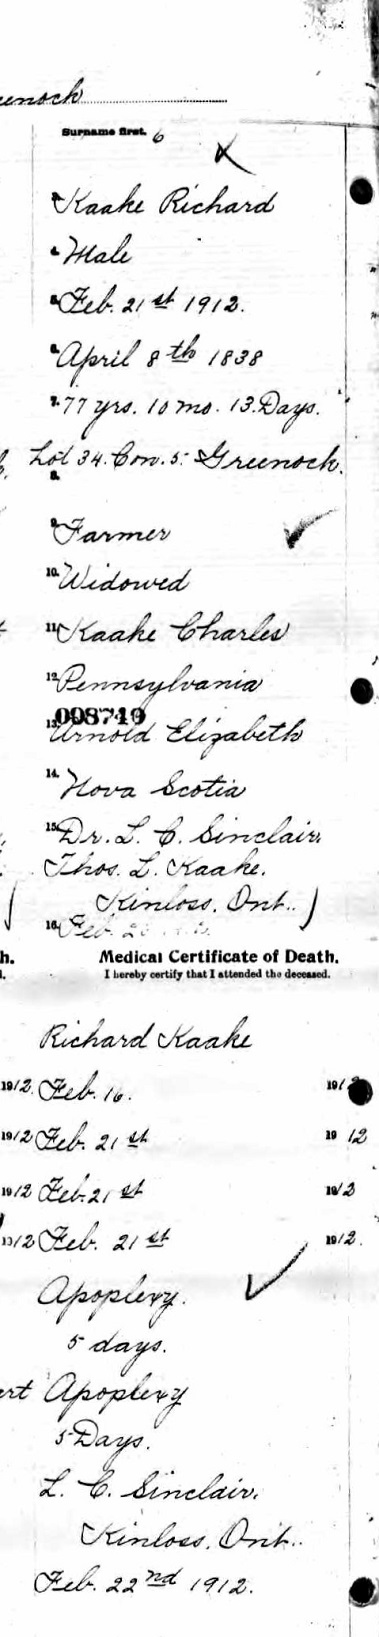 enoch
Surname first. 6
Kaake Richard
4. Male
5. Feb. 21st 1912.
6. April 8th 1838
7. 77 yrs. 10 mo. 13. Days.
Lot 34. Con. 5. Greenock.
8.
9. Farmer
10. Widowed
11. Kaake Charles
12. Pennsylvania
008740
13. Arnold Elizabeth
14. Nova Scotia
15. Dr. L. C. Sinclair.
Thos. L. Kaake.
Kinloss. Ont..)
16. Feb.
h. Medical Certificate of Death.
I hereby certify that I attended the deceased.
Richard Kaake
1912 Feb. 16. 191
1912 Feb. 21st 19 12
1912 Feb. 21st 1912
1912 Feb. 21st 1912.
Apoplexy.
5 days.
Apoplexy
5 Days.
L. C. Sinclair.
Kinloss. Ont..
Feb. 22nd 1912.